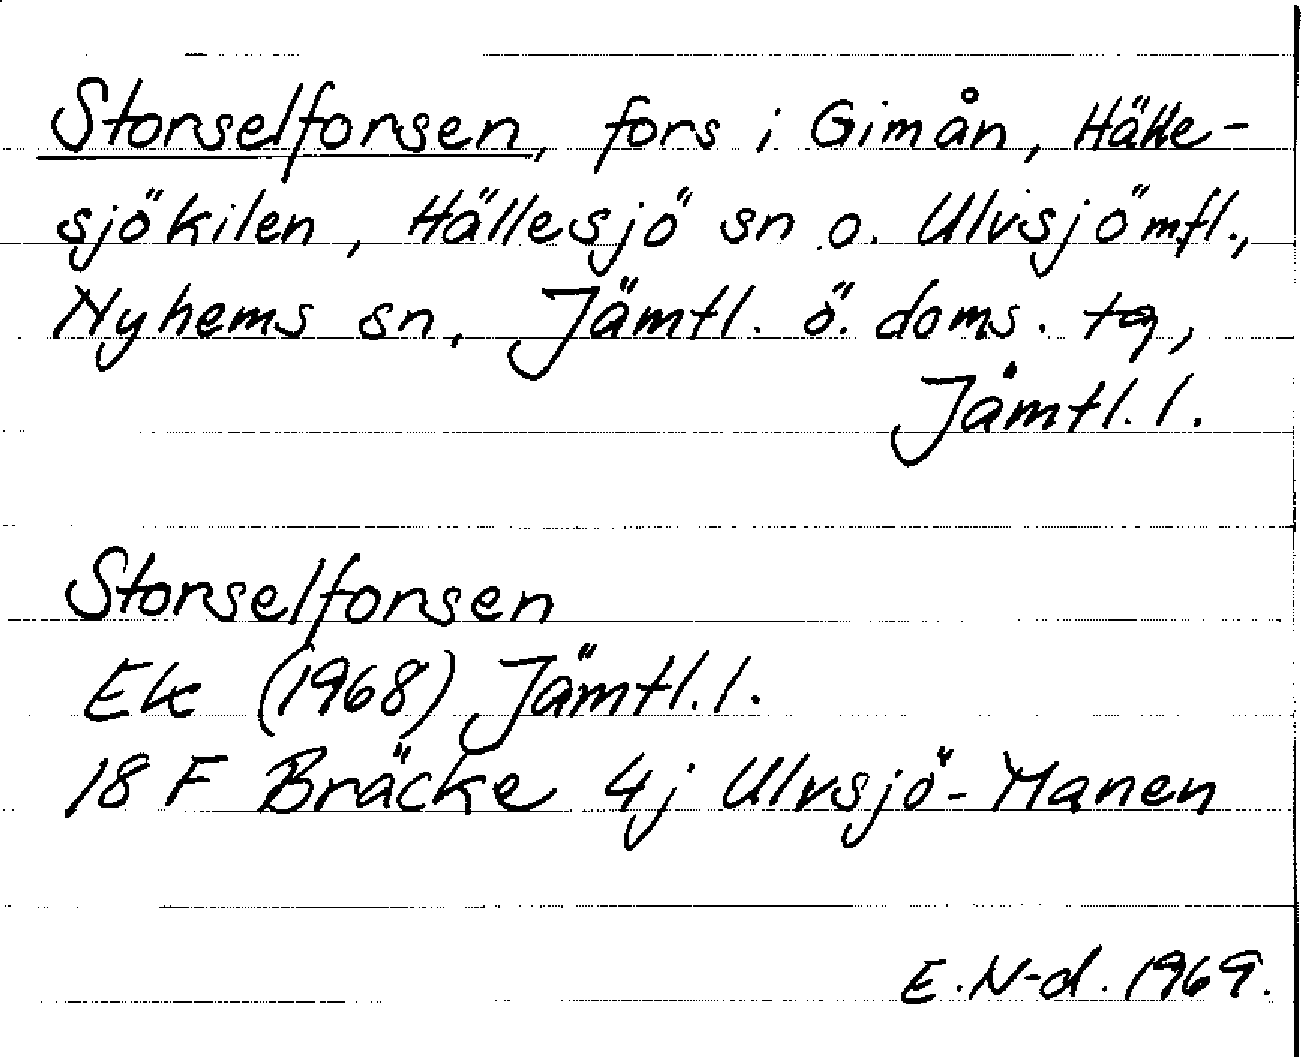 Storselforsen, fors i Gimån, Hälle-
sjökilen, Hällesjö sn o. Ulvsjömfl.,
Nyhems sn, Jämtl. ö. doms. tg,
Jämtl. l.
Storselforsen
Ek (1968) Jämtl. l.
18 F Bräcke 4j Ulvsjö-Manen
E. N-d. 1969.